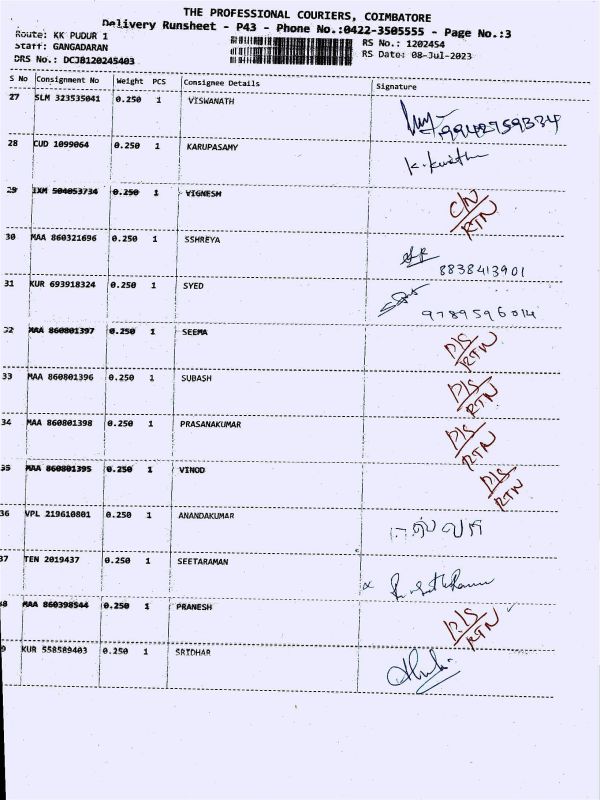 THE PROFESSIONAL COURIERS, COIMBATORE
Delivery Runsheet - P43 - Phone No.:0422-3505555 - Page No.:3
Route: KK PUDUR 1 RS No.: 1202454
Staff: GANGADARAN RS Date: 08-Jul-2023
DRS No.: DCJ8120245403
S No Consignment No Weight PCS Consignee Details Signature
27 SLM 323535041 0.250 1 VISWANATH 9942759334
28 CUD 1099064 0.250 1 KARUPASAMY
29 IXM 504053734 0.250 1 VIGNESH C/N RTN
30 MAA 860321696 0.250 1 SSHREYA 8838413901
31 KUR 693918324 0.250 1 SYED 9789596014
32 MAA 860801397 0.250 1 SEEMA D/S RTN
33 MAA 860801396 0.250 1 SUBASH D/S RTN
34 MAA 860801398 0.250 1 PRASANAKUMAR D/S RTN
35 MAA 860801395 0.250 1 VINOD D/S RTN
36 VPL 219610801 0.250 1 ANANDAKUMAR
37 TEN 2019437 0.250 1 SEETARAMAN
38 MAA 860398544 0.250 1 PRANESH D/S RTN
9 KUR 558589403 0.250 1 SRIDHAR